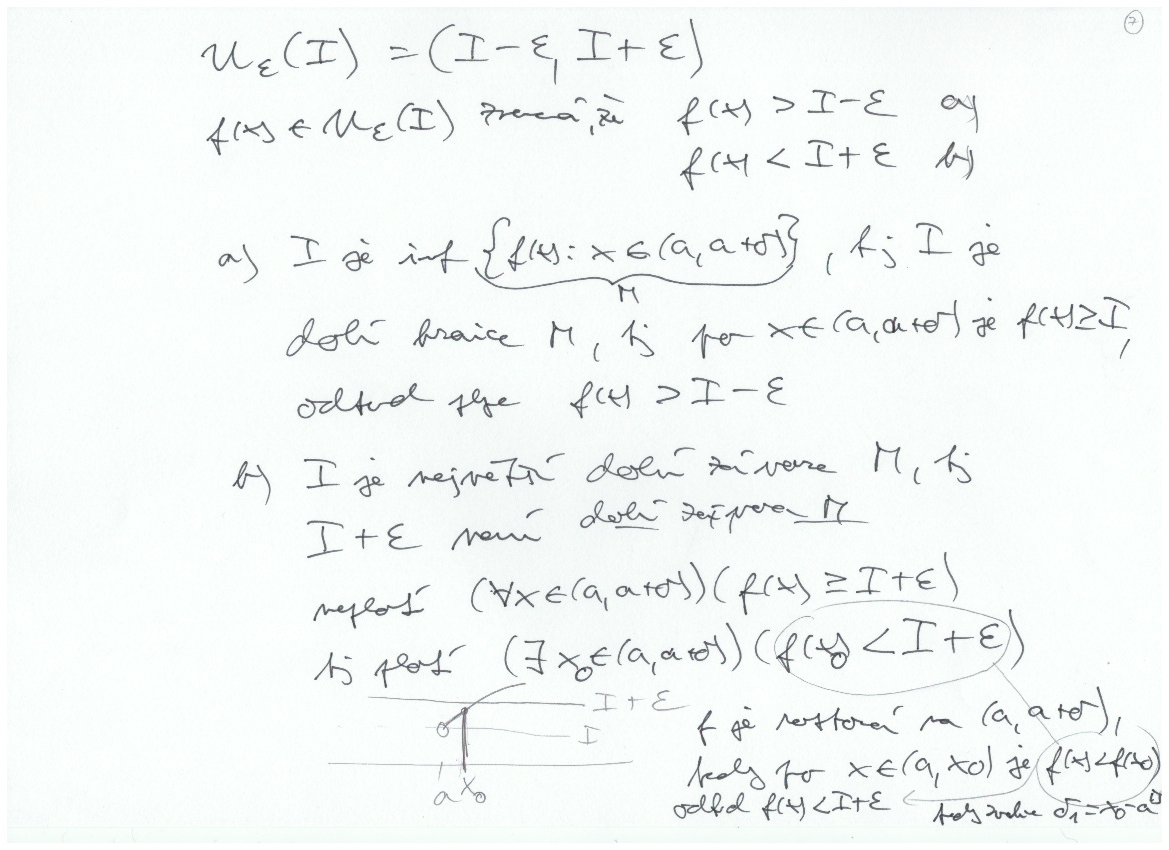 7
U_ε(I) = (I-ε, I+ε)
f(x) ∈ U_ε(I) znamená, že f(x) > I-ε a)
f(x) < I+ε b)
a) I je inf {f(x): x ∈ (a, a+δ)}, tj I je
M
dolní hranice M, tj pro x ∈ (a, a+δ) je f(x) ≥ I,
odtud plyne f(x) > I-ε
b) I je největší dolní závora M, tj
I+ε není dolní závora M
neplatí (∀x ∈ (a, a+δ)) (f(x) ≥ I+ε)
tj platí (∃ x₀ ∈ (a, a+δ)) (f(x₀) < I+ε)
I+ε
I
a x₀
f je rostoucí na (a, a+δ),
tedy pro x ∈ (a, x₀) je f(x) < f(x₀)
odtud f(x) < I+ε
tedy volme δ₁ = x₀-a